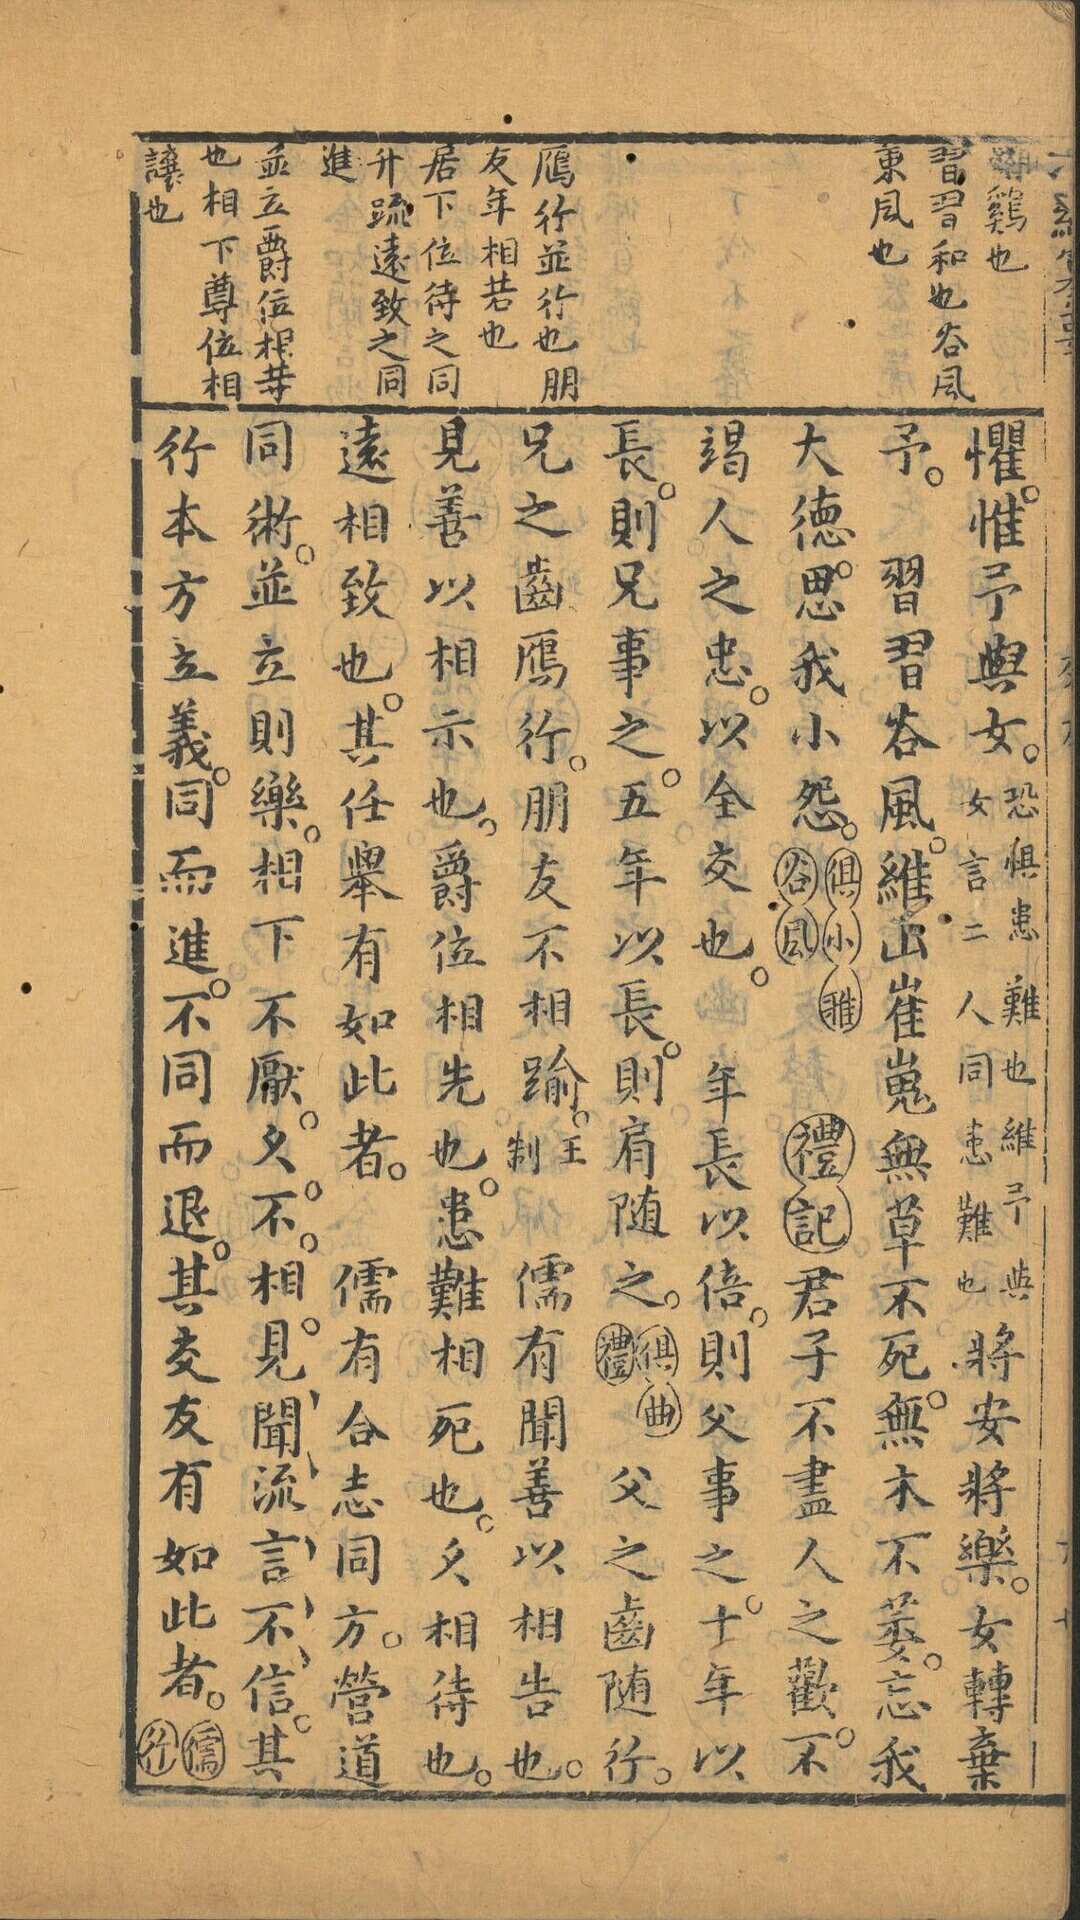 雞也
習習和也谷風
東風也
鴈行並行也朋
友年相若也
居下位待之同
升疏遠致之同
進
並立爵位相等
也相下尊位相
讓也
懼惟予與女恐懼患難也維予與女言二人同患難也將安將樂女轉棄
予 習習谷風維山崔嵬無草不死無木不萎忘我
大德思我小怨俱小雅谷風 禮記君子不盡人之歡不
竭人之忠以全交也 年長以倍則父事之十年以
長則兄事之五年以長則肩随之俱曲禮 父之齒随行
兄之齒鴈行朋友不相踰王制 儒有聞善以相告也
見善以相示也爵位相先也患難相死也久相待也
遠相致也其任舉有如此者 儒有合志同方營道
同術並立則樂相下不厭久不相見聞流言不信其
行本方立義同而進不同而退其交友有如此者儒行